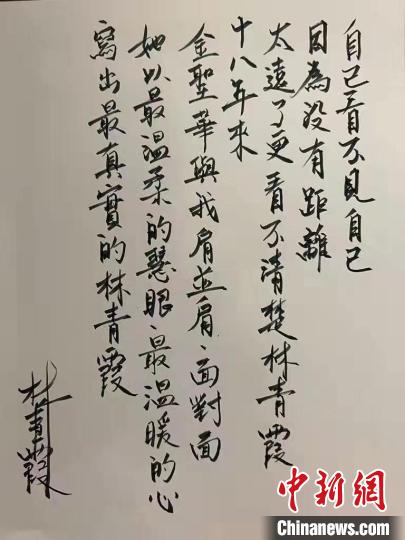 自己看不見自己
因為沒有距離
太遠了更看不清楚林青霞
十八年來
金聖華與我肩並肩、面對面
她以最溫柔的慧眼、最溫暖的心
寫出最真實的林青霞
林青霞
中新网
Chinanews.com